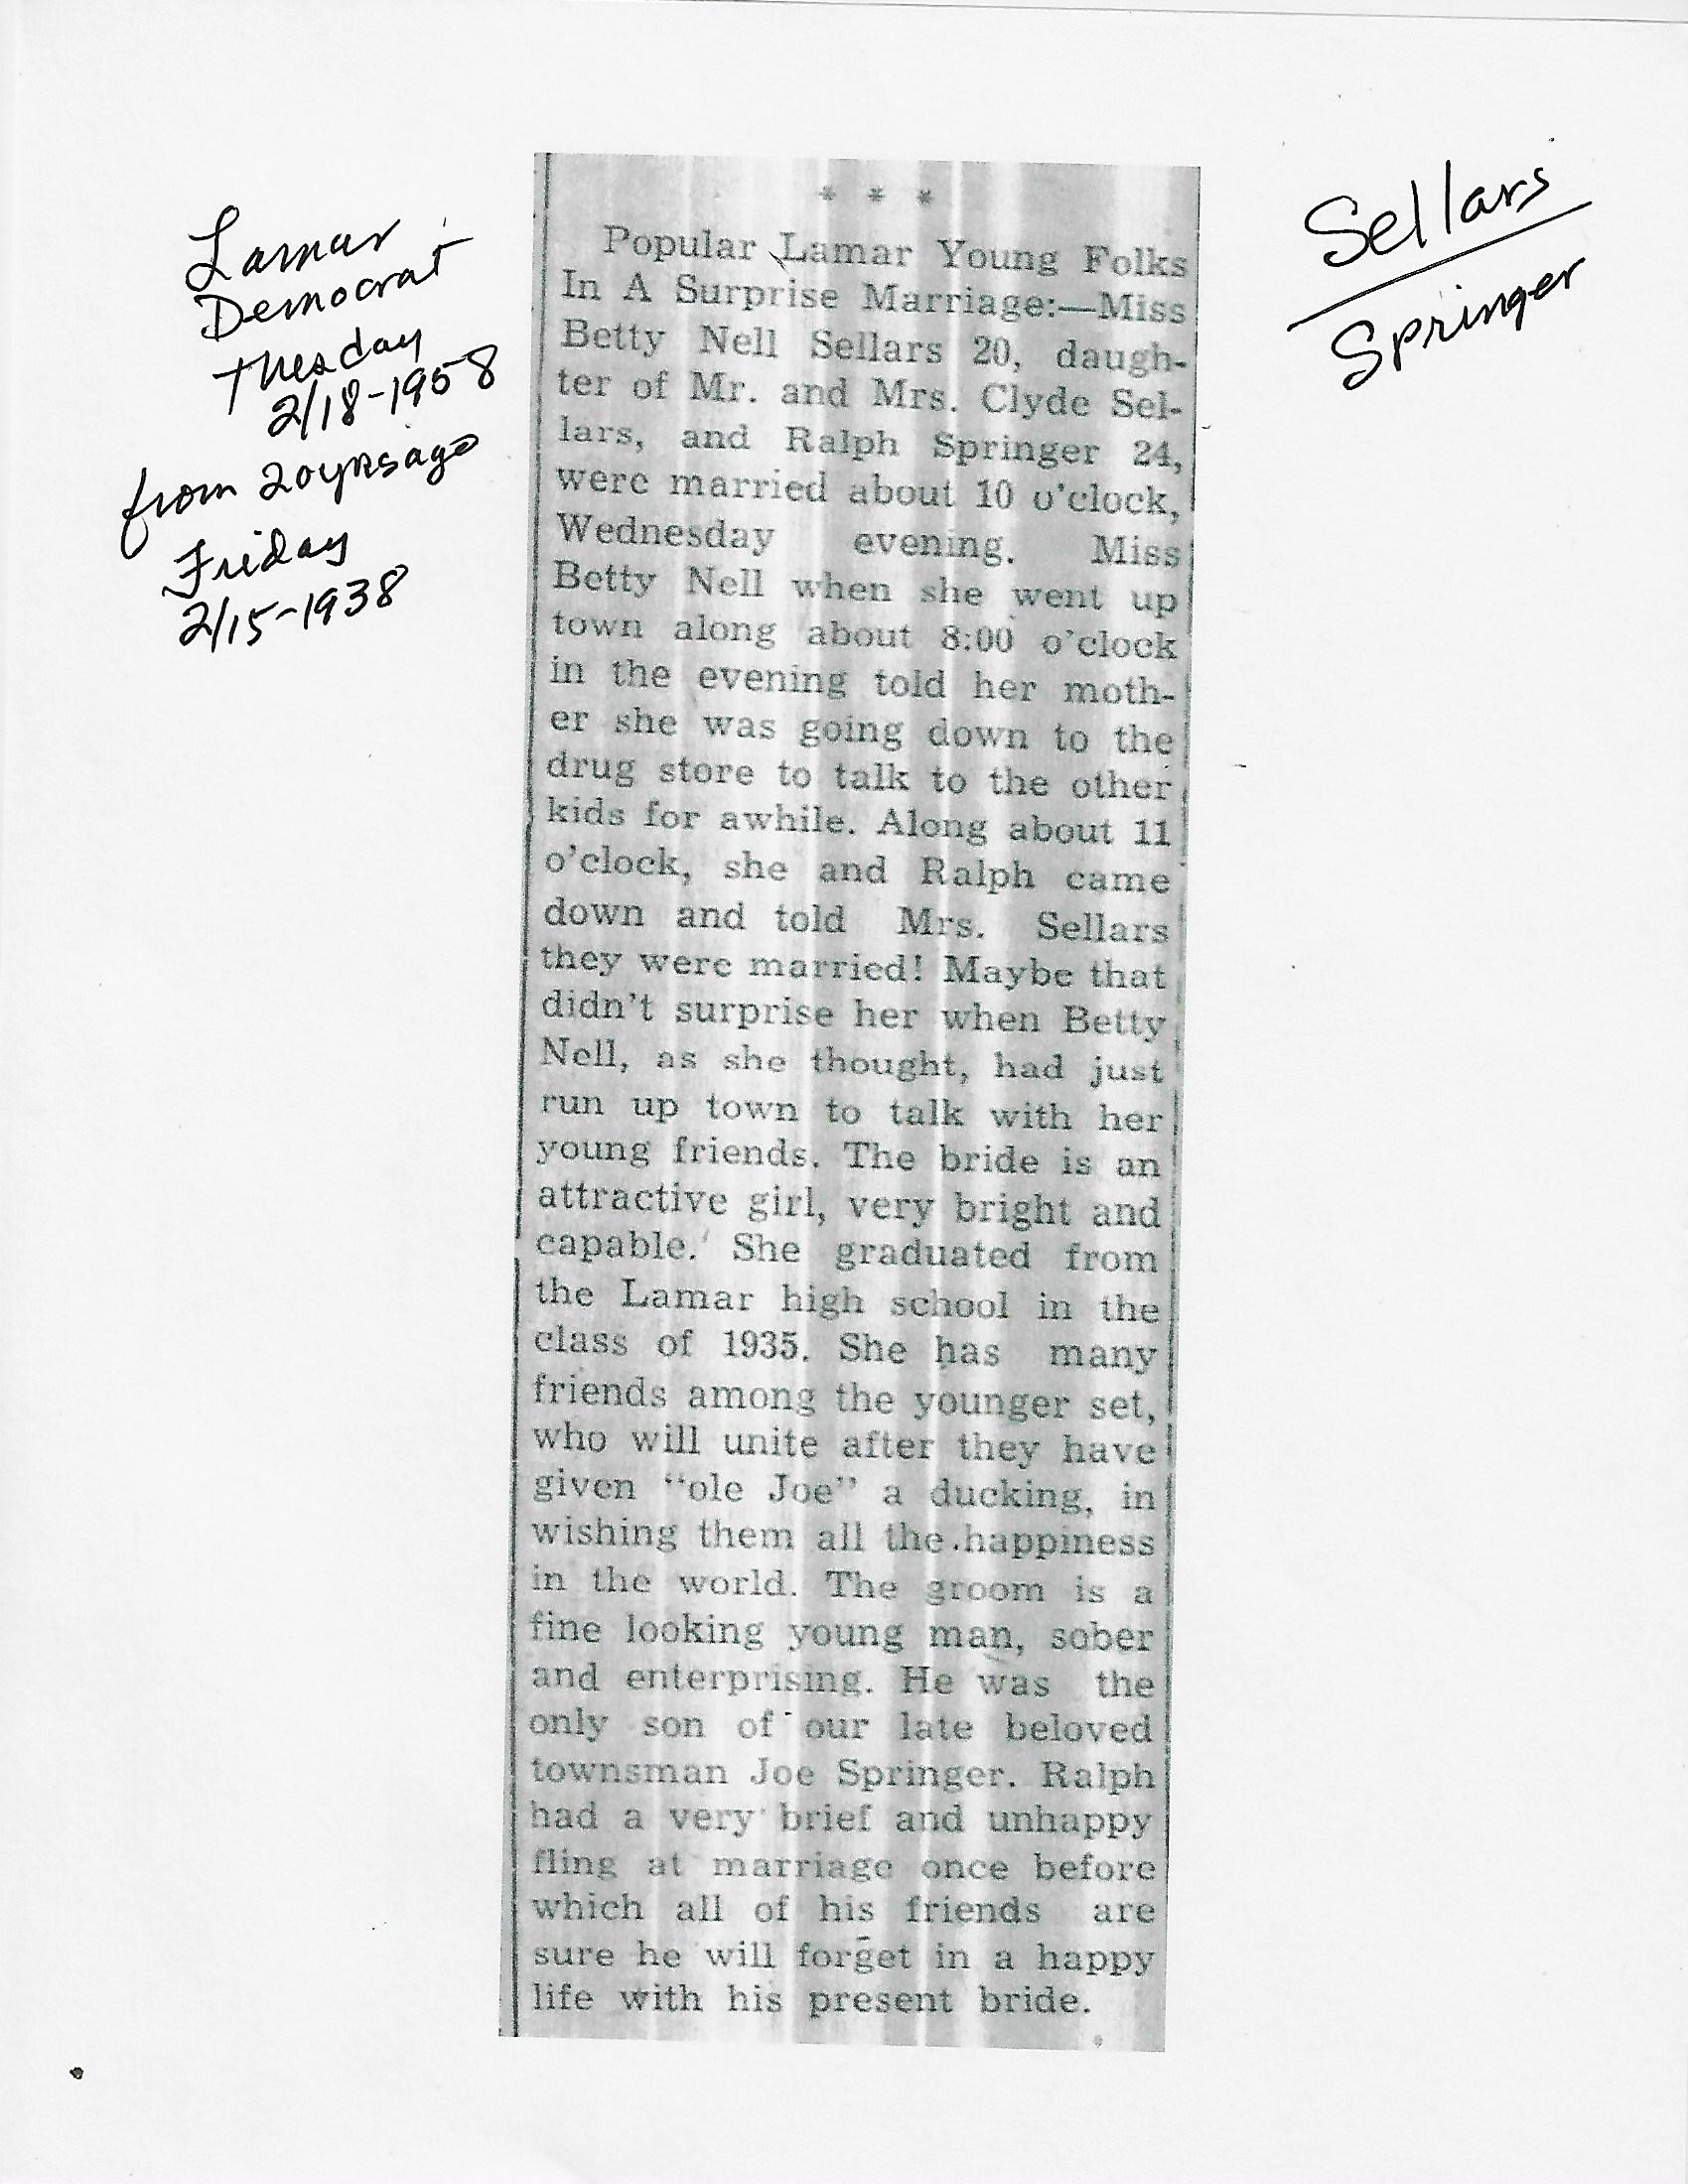 Lamar
Democrat
Tuesday
2/18-1958
from 20yrs ago
Friday
2/15-1938
Sellars
Springer
* * *
Popular Lamar Young Folks
In A Surprise Marriage:—Miss
Betty Nell Sellars 20, daugh-
ter of Mr. and Mrs. Clyde Sel-
lars, and Ralph Springer 24,
were married about 10 o'clock,
Wednesday evening. Miss
Betty Nell when she went up
town along about 8:00 o'clock
in the evening told her moth-
er she was going down to the
drug store to talk to the other
kids for awhile. Along about 11
o'clock, she and Ralph came
down and told Mrs. Sellars
they were married! Maybe that
didn't surprise her when Betty
Nell, as she thought, had just
run up town to talk with her
young friends. The bride is an
attractive girl, very bright and
capable. She graduated from
the Lamar high school in the
class of 1935. She has many
friends among the younger set,
who will unite after they have
given "ole Joe" a ducking, in
wishing them all the happiness
in the world. The groom is a
fine looking young man, sober
and enterprising. He was the
only son of our late beloved
townsman Joe Springer. Ralph
had a very brief and unhappy
fling at marriage once before
which all of his friends are
sure he will forget in a happy
life with his present bride.